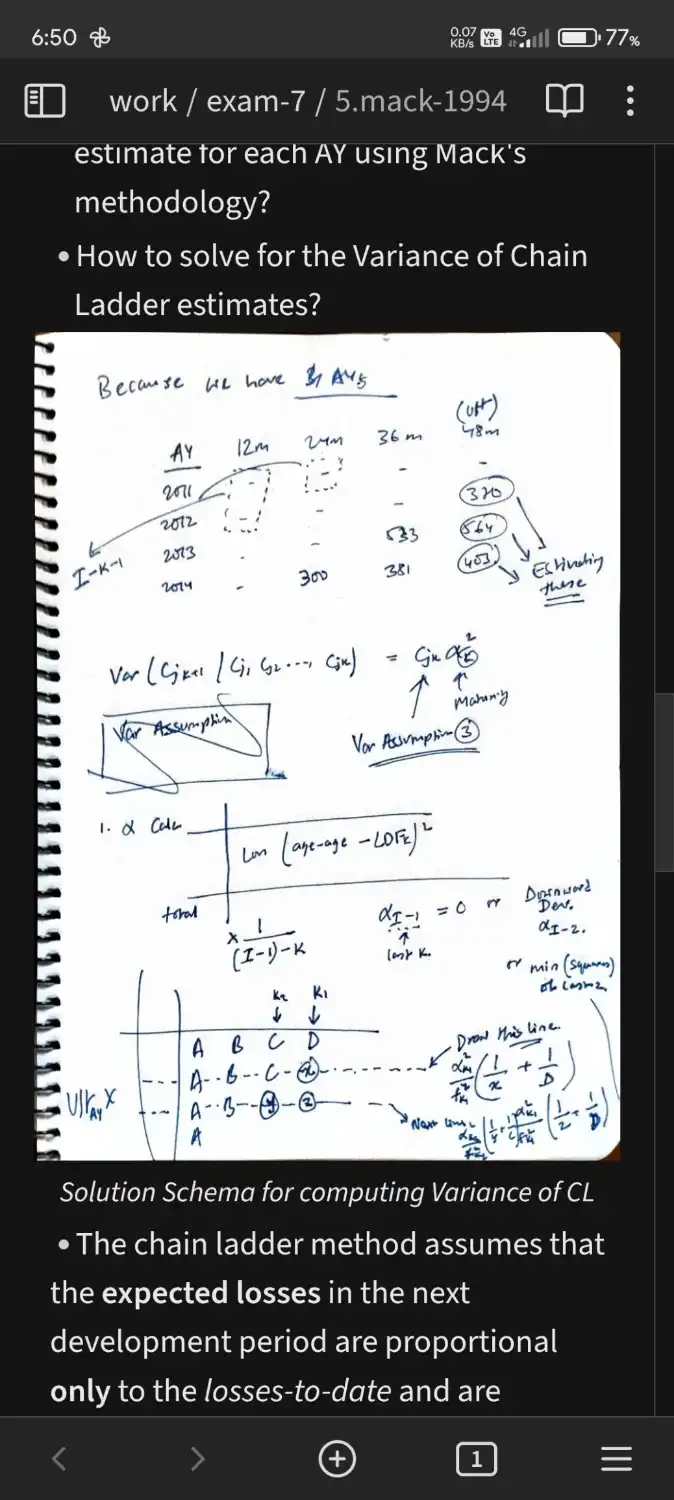 6:50
0.07 KB/s Vo LTE 4G 77%
work / exam-7 / 5.mack-1994
estimate for each AY using Mack's
methodology?
• How to solve for the Variance of Chain
Ladder estimates?
Because we have AYs
(Ult)
AY 12m 24m 36m 48m
2011 - - - -
2012 - - - 370
2013 - - 533 564
2014 - 300 381 403
I-K-1
Estimating
these
Var (Cjk+1 | Cj1, Cj2 ...., Cjk) = Cjk αk²
Maturity
Var Assumption
Var Assumption 3
1. α Calc
Loss (age-age - LDFk)²
total
x 1/((I-1)-K)
αI-1 = 0 or Downward
Dev.
αI-2.
last K.
or min (squares)
K2 K1
A B C D
Draw this line
A--B--C--x
αk1²/fk1² (1/x + 1/D)
Ult AY X
A--B--y--z
Next line
A
Solution Schema for computing Variance of CL
• The chain ladder method assumes that
the expected losses in the next
development period are proportional
only to the losses-to-date and are
1